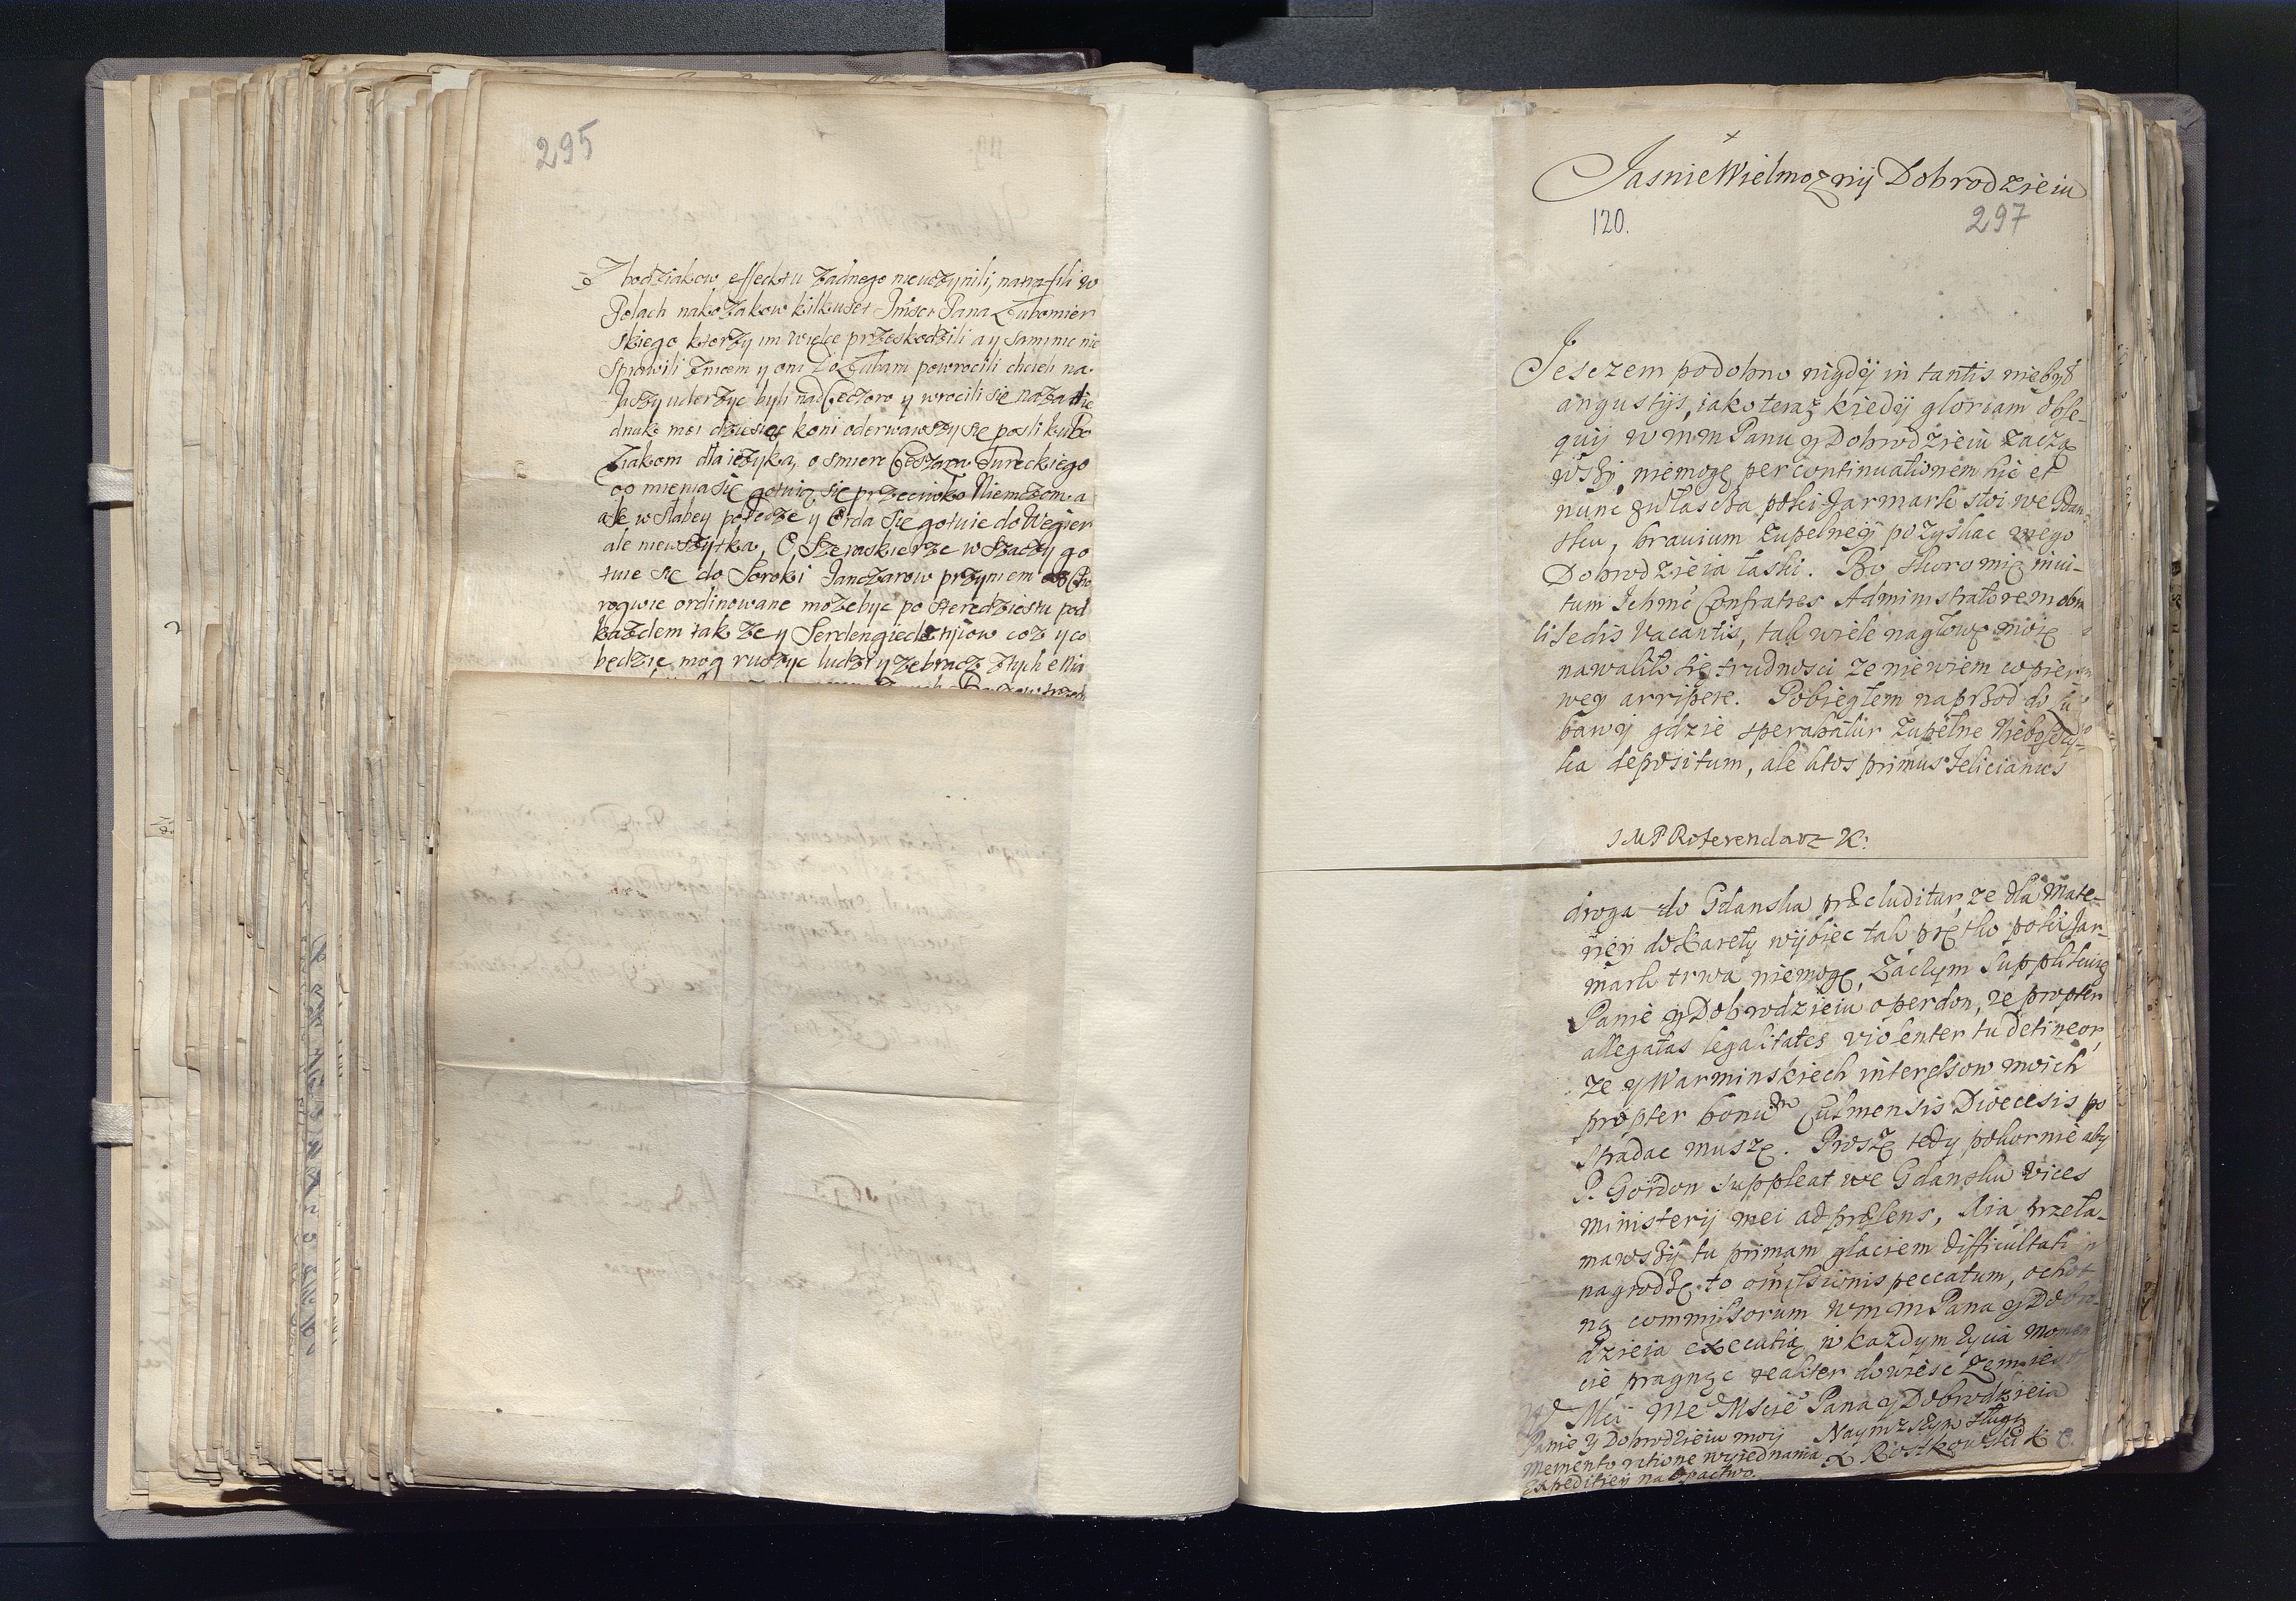 295
Zbodziakow, effecktu Zadnego nieuczynili, natrafili w
Polach nakozakow kilkuset Imści Pana Lubomier
skiego ktorzy im wielce przeskodzili a y samime nie
sprawili
powrocili chcieli na
Jassy uderzyc byli nad Ceczoro y wrocili się nazad ie
dnak moi dziesięc koni oderwawszy się posli kubo
Ziakom dla ięzyka, o smierc Cesarza Tureckiego
gotuią się przeciwko Niemczom a
ale w slabey potędze y Orda się gotuie do Węgier
ale niewszytka, O Seraskierze w Szaczy go
tuie się do Soroki Janczarow przyniem
rogwie ordinowane mozebyc po steredziestu pod
kazdem tak ze y Serdengiecletyiow coz y co
będzie mog ruszyc ludzi y zebracz
Jasnie Wielmoznÿ Dobrodzieiu
120.
297
Jesczem podobno nigdÿ in tantis niebÿł
angustÿs, iako teraz kiedÿ gloriam obse-
quÿ W M M Panu y Dobrodzieiu zaczą
wszÿ, niemogę per continuationem hic et
nunc zwłascza poki Jarmark stoi we Gdan-
sku, bravium zupełneÿ pozyskac mego
Dobrodzieia łaski. Bo skoro mię invi-
tum Ichmć Confratres Administratorem obra
li Sedis Vacantis, tak wiele nagłowę moię
nawaliło się trudnosci ze niewiem co pier
wey arripere. Pobiegłem naprzod do Lu
bawÿ gdzie sperabatur zupełne Nieboscÿ-
ka depositum, ale ktos primus Felicianus
I M P Referendarz K:
droga do Gdanska præcluditur ze dla Mate-
rieÿ do Karety wÿbiec tak prętko poki Jar-
mark trwa niemogę, Zaczym supplikuię
Panie y Dobrodzieiu o perdon, ze propter
allegatas legalitates violenter tu detineor,
ze y Warminskiech interessow moich
propter bonum Culmensis Dioecesis po
stradac muszę. Proszę tedy pokornie aby
P. Gordon suppleat we Gdansku vices
ministerij mei ad præsens, A ia przeła-
mawszÿ tu primam glaciem difficultati
nagrodzę to omissionis peccatum, ochot
ną commissorum W M M Pana y Dobro-
dzieia executią w kazdym zycia momen
cie pragnąc realiter dowiesc zem iest
W Mci Me Mscie Pana y Dobrodzieia
Panie y Dobrodzieiu moÿ Naynizszym sługą
Memento ratione wyiednania X Rostkowski K C.
Expeditieÿ na Opactwo.